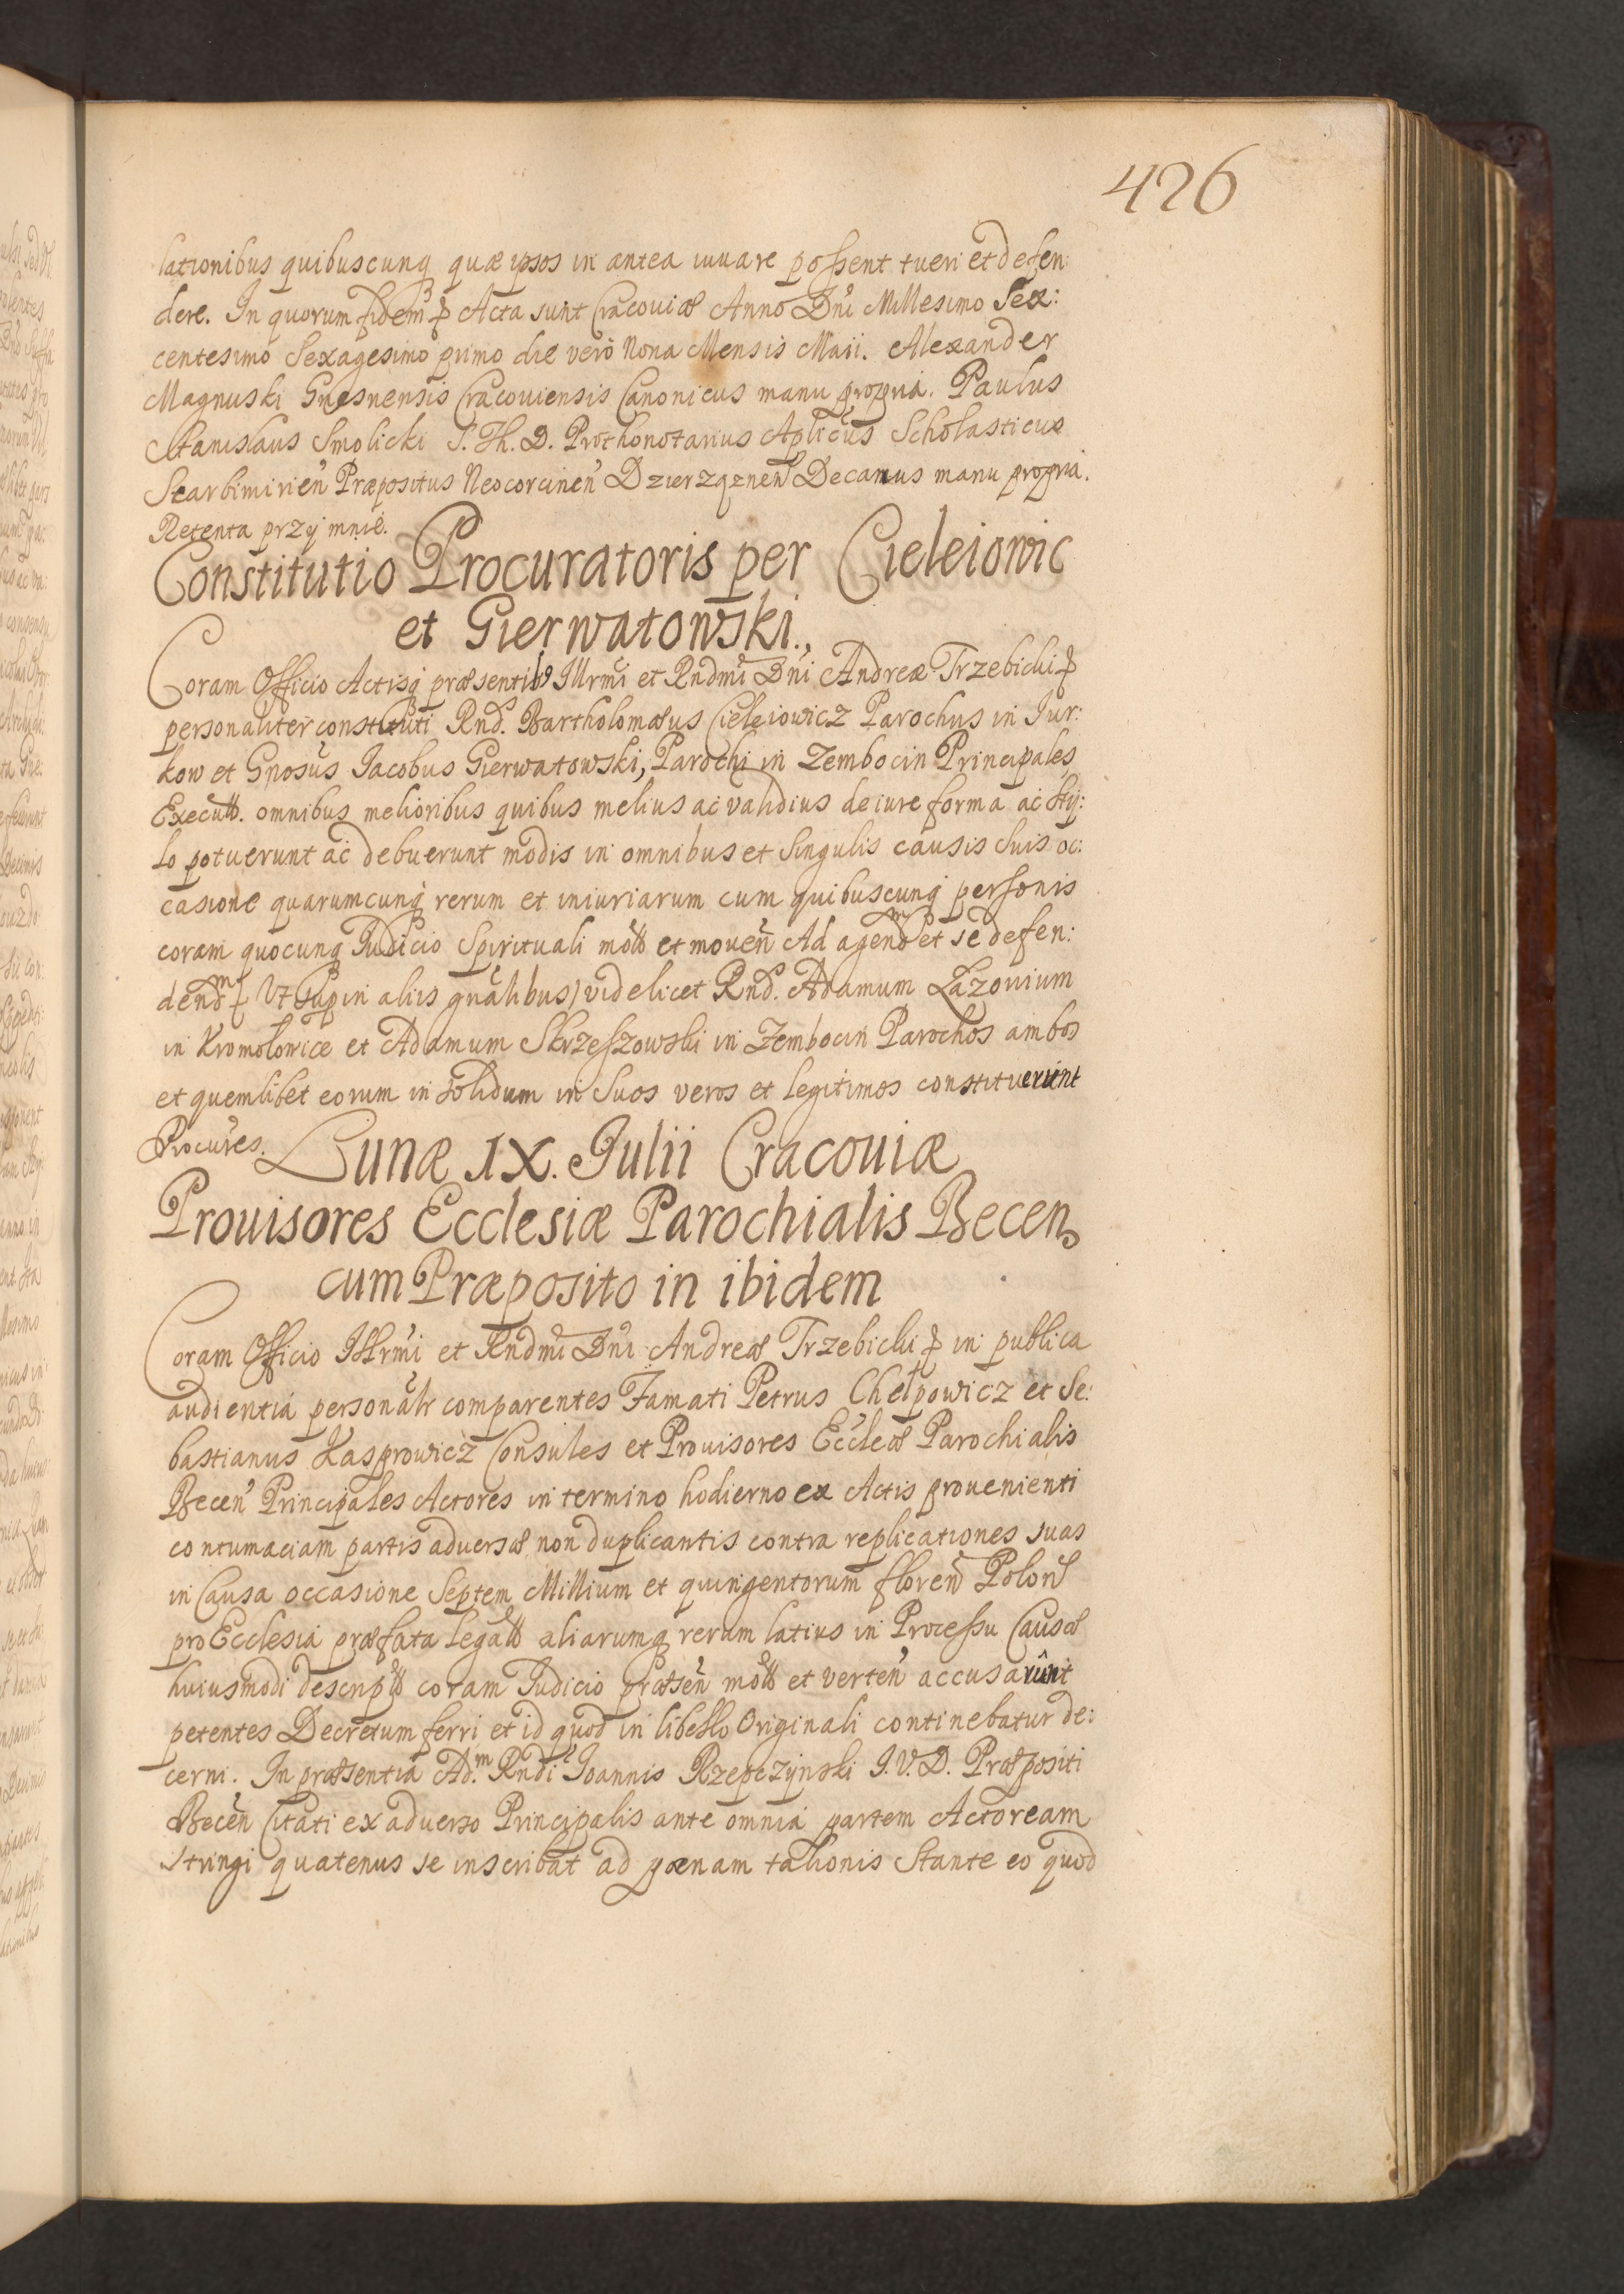 426
lationibus quibuscunq quæ ipsos in antea iuuare possent tueri et defen:
dere. In quorum fidem Acta sunt Cracouiæ Anno Dni Millesimo Sex:
centesimo Sexagesimo primo die vero Nona Mensis Maii. Alexander
Magnuski Gnesnensis Cracouiensis Canonicus manu propria. Paulus
Stanislaus Smolicki S. Th. D. Prothonotarius Aplicus Scholasticus
Scarbimirien Præpositus Neocorcinen Dzierzgznen Decanus manu propria.
Retenta przy mnie.
Constitutio Procuratoris per Cieleiowic
et Gierwatowski.,
Coram Officio Actisq præsentib9 Illrmi et Rndmi Dni Andreæ Trzebicki
personaliter constituti Rnd. Bartholomæus Cieleiowicz Parochus in Jur:
kow et Gnosus Jacobus Gierwatowski, Parochi in Zembocin Principales
Execut. omnibus melioribus quibus melius ac validius de iure forma ac sty:
lo potuerunt ac debuerunt modis in omnibus et singulis causis suis oc:
casione quarumcunq rerum et iniuriarum cum quibuscunq personis
coram quocunq Judicio Spirituali mot et mouen Ad agend et se defen:
dend Ut sup in aliis gnalibus) videlicet Rnd. Adamum Łazouium
in Kromołowice et Adamum Skrzeszowski in Zembocin Parochos ambos
et quemlibet eorum in solidum in suos veros et legitimos constituerunt
Procures. Lunæ IX. Julii Cracouiæ
Prouisores Ecclesiæ Parochialis Becen
cum Præposito in ibidem
Coram Officio Illrmi et Rndmi Dni Andreæ Trzebicki in publica
audientia personalr comparentes Famati Petrus Chelpowicz et Se:
bastianus Kasprowicz Consules et Prouisores Eccleæ Parochialis
Becen Principales Actores in termino hodierno ex Actis prouenienti
contumaciam partis aduersæ non duplicantis contra replicationes suas
in Causa occasione Septem Millium et quingentorum floren Polon
pro Ecclesia præfata legat aliarumq rerum latius in Processu Causæ
huiusmodi descript coram Judicio præsen mot et verten accusarunt
petentes Decretum ferri et id quod in libello Originali continebatur de:
cerni. In præsentia Ad.m Rndi Joannis Rzepczynski J.V.D. Præpositi
Becen Citati ex aduerso Principalis ante omnia partem Actoream
stringi quatenus se inscribat ad pœnam talionis Stante eo quod